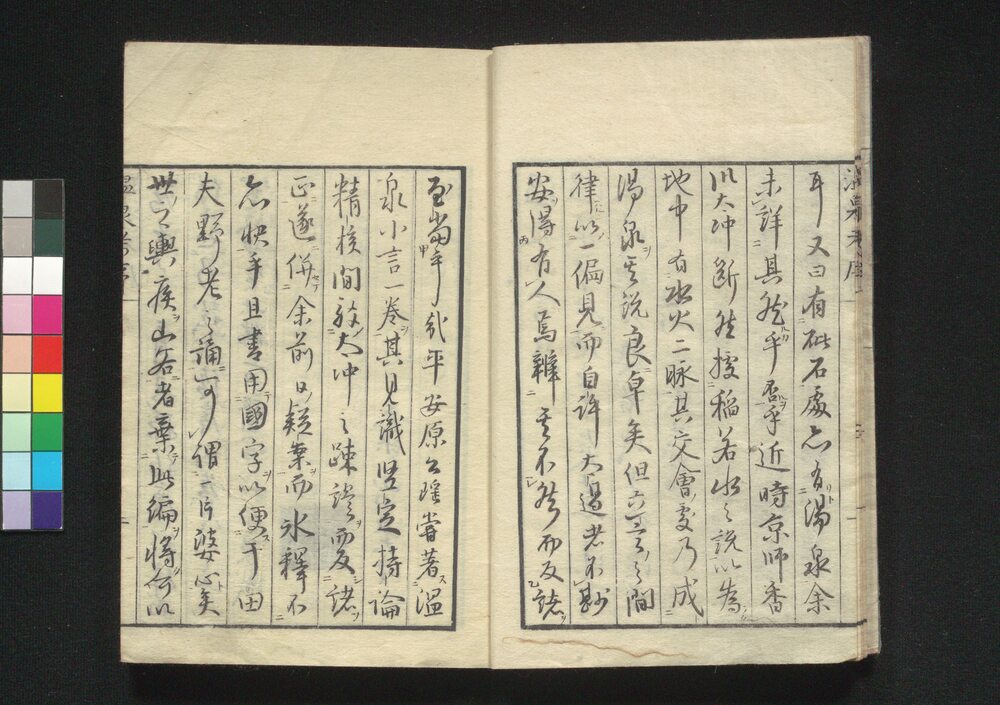 耳又曰有砒石處亦有湯泉余
未詳其然乎否乎近時京師香
川大冲斷然據稲若水之説以為
地中有水火二脉其交會處乃成
湯泉其説良卓矣但六百言之間
律以一偏見而自許太過者不尠
安得有人焉辨其不然而反諸
至當乎哉平安原公瑶嘗著溫
泉小言一卷其見識堅定持論
精核間駁大冲之踈謬而反諸
正遂併余前日疑案而氷釋不
亦快乎且書用國字以便于田
夫野老之誦可謂一片婆心矣
世之輿疾山谷者棄此編將何以